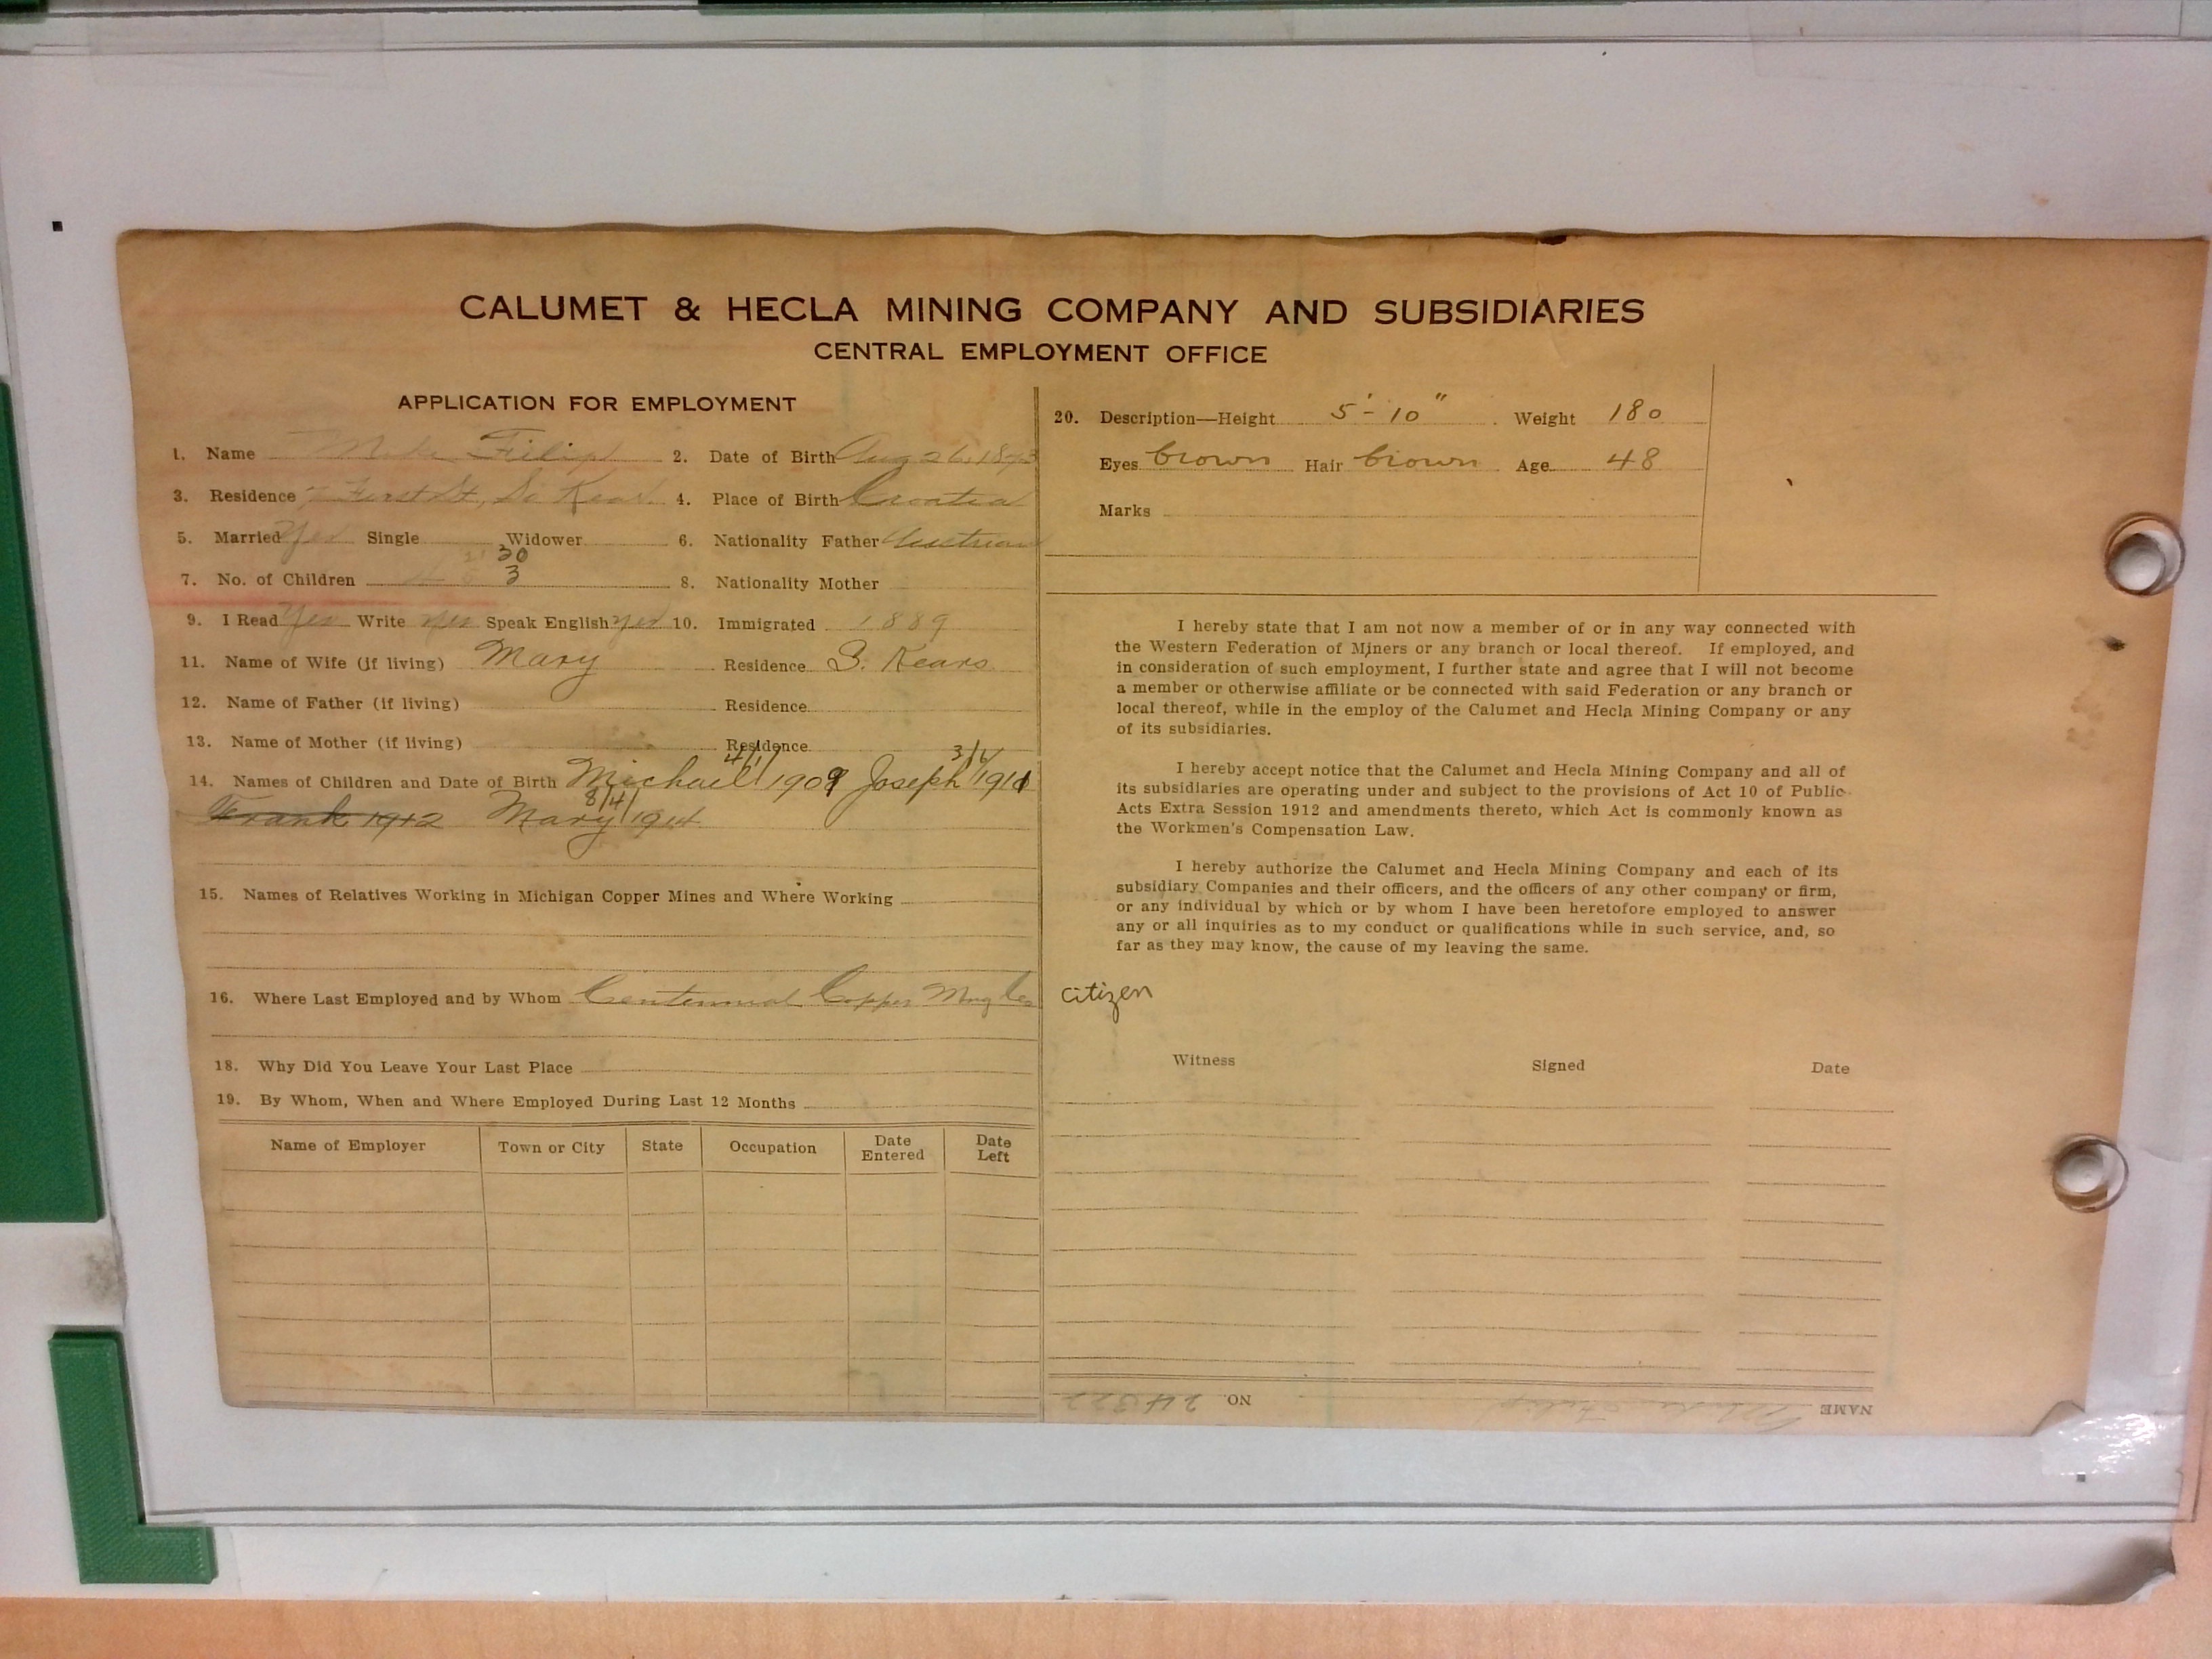 CALUMET & HECLA MINING COMPANY AND SUBSIDIARIES
CENTRAL EMPLOYMENT OFFICE
APPLICATION FOR EMPLOYMENT
1. Name Mike Filip 2. Date of Birth Aug 26, 1873
3. Residence First St, So Kear. 4. Place of Birth Croatia
5. Married Yes Single Widower 6. Nationality Father Austrian
30
7. No. of Children 3 8. Nationality Mother
9. I Read Yes Write Yes Speak English Yes 10. Immigrated 1889
11. Name of Wife (if living) Mary Residence S. Kears
12. Name of Father (if living) Residence
13. Name of Mother (if living) Residence
14. Names of Children and Date of Birth Michael 4/1/1909 Joseph 1911
Frank 1912 Mary 8/4/1914
15. Names of Relatives Working in Michigan Copper Mines and Where Working
16. Where Last Employed and by Whom Centennial Copper Mng Co
18. Why Did You Leave Your Last Place
19. By Whom, When and Where Employed During Last 12 Months
Name of Employer Town or City State Occupation Date Entered Date Left
20. Description—Height 5'-10" Weight 180
Eyes brown Hair brown Age 48
Marks
I hereby state that I am not now a member of or in any way connected with
the Western Federation of Miners or any branch or local thereof. If employed, and
in consideration of such employment, I further state and agree that I will not become
a member or otherwise affiliate or be connected with said Federation or any branch or
local thereof, while in the employ of the Calumet and Hecla Mining Company or any
of its subsidiaries.
I hereby accept notice that the Calumet and Hecla Mining Company and all of
its subsidiaries are operating under and subject to the provisions of Act 10 of Public
Acts Extra Session 1912 and amendments thereto, which Act is commonly known as
the Workmen's Compensation Law.
I hereby authorize the Calumet and Hecla Mining Company and each of its
subsidiary Companies and their officers, and the officers of any other company or firm,
or any individual by which or by whom I have been heretofore employed to answer
any or all inquiries as to my conduct or qualifications while in such service, and, so
far as they may know, the cause of my leaving the same.
citizen
Witness Signed Date
NAME Filip NO. 24322